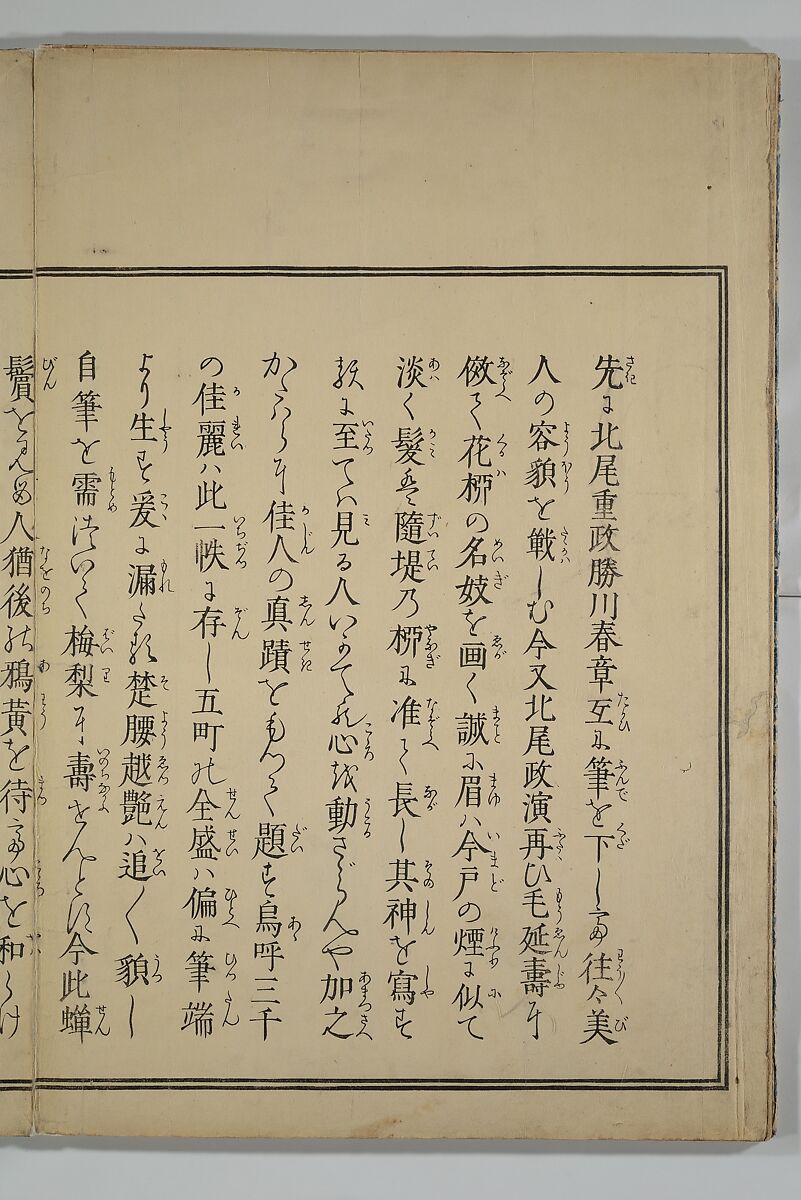 先に北尾重政勝川春章互に筆を下して往々美
人の容貌を戦しむ今又北尾政演再ひ毛延壽に
傚て花柳の名妓を画く誠に眉は今戸の煙に似て
淡く髪は隨堤乃柳に准て長し其神を寫す
に至ては見る人いかてか心を動さゞらんや加之
かたはらに佳人の真蹟をもつて題す烏呼三千
の佳麗ハ此一帙に存し五町の全盛ハ偏に筆端
より生す爰に漏たる楚腰越艶ハ追〱貌し
自筆を需つひて梅梨に壽せんとす今此蝉
鬢を見る人猶後の鴉黄を待て心を和らけ